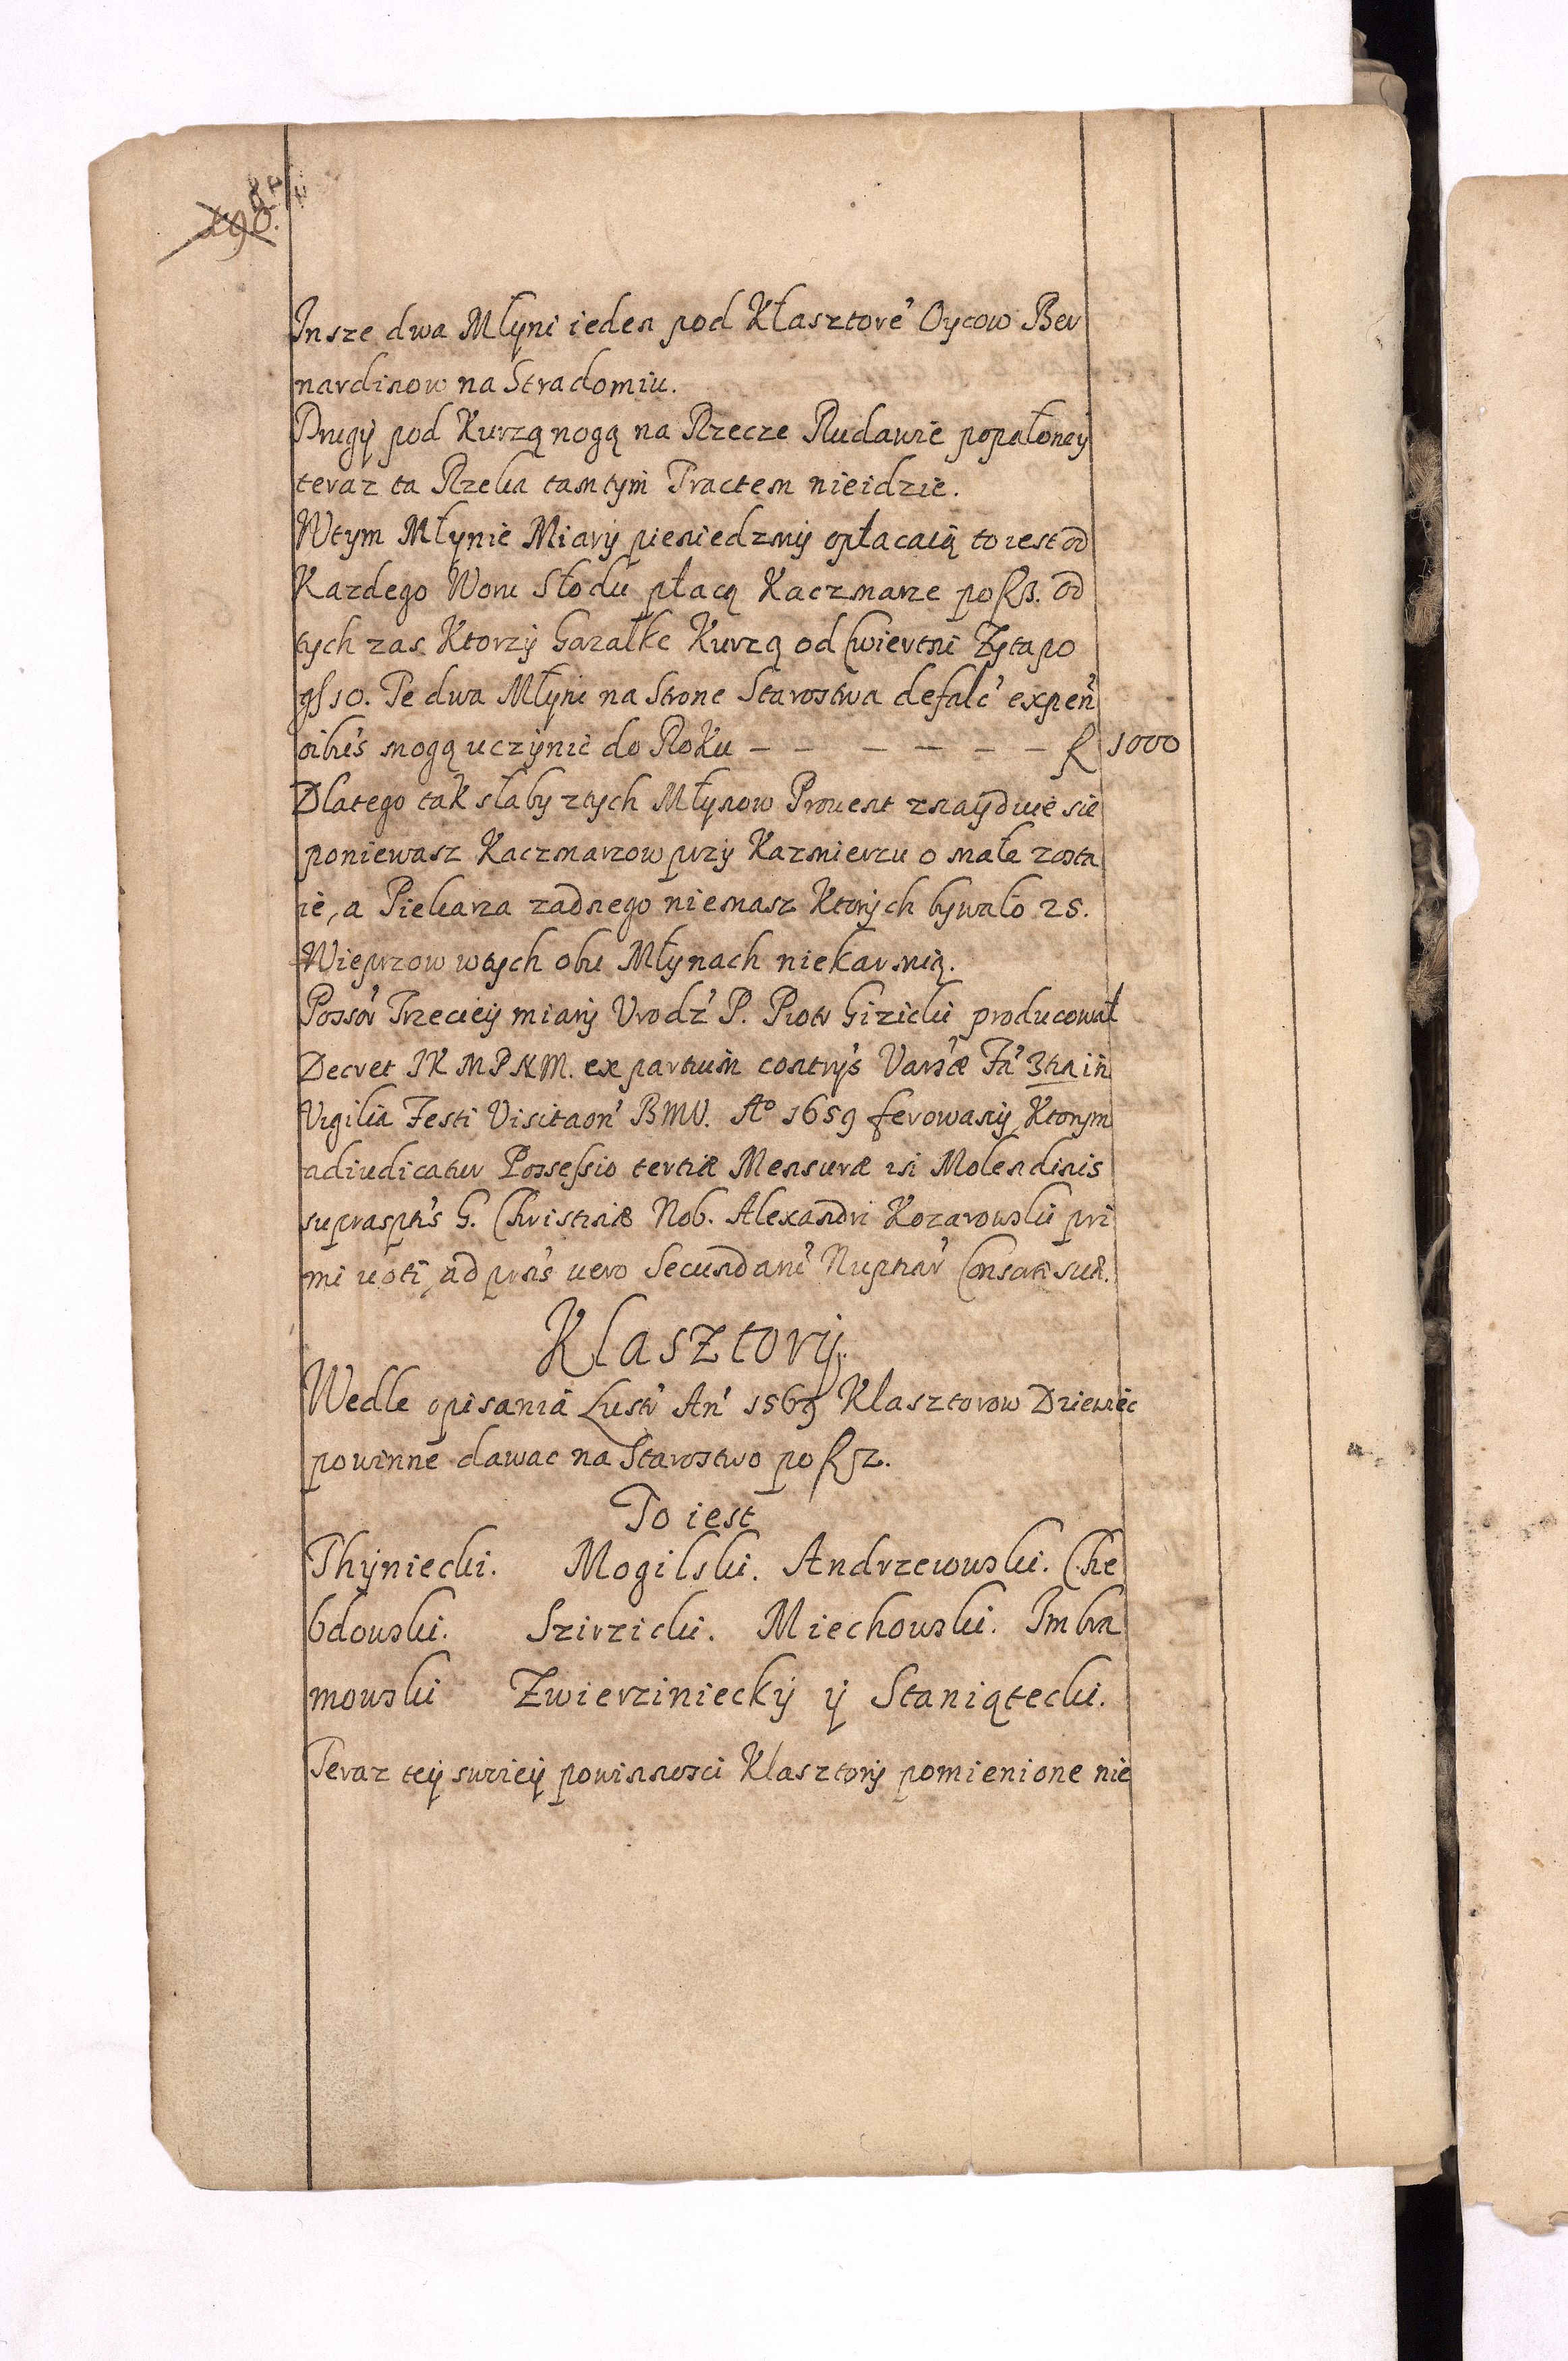 190.
Insze dwa Młyni ieden pod Kłasztore' Oycow Ber
nardinow na Stradomiu.
Drugÿ pod Kurzą nogą na Rzecze Rudawie popałonÿ
teraz ta Rzeka tamtym Tractem nieidzie.
Wtym Młynie Miarÿ pieniedzmÿ opłacaią to iest od
Kazdego Woru Słodu płacą Kaczmarze po f 3. od
tych zas Ktorzÿ Gazałke Kurzą od Cwiertni Zyta po
gſ 10. Te dwa Młyni na Strone Starostwa defalc' expen'
sibus' mogą uczÿnic do Roku — — — — — — f 1000
Dlatego tak słaby ztych Młynow Prouent znaÿduie sie
poniewasz Kaczmarzow przÿ Kazmierzu o mała zosta
ie, a Piekarza zadnego niemasz Ktorÿch bywało 25.
Wieprzow wtych obu Młynach niekarmią.
Possor' Trzecieÿ miarÿ Urodz' P. Piotr Gizicki producował
Decret IK M P N M. ex partium contrys' Vars'æ Fa' 3tia in
Vigilia Festi Visitaon' BMV. Ao 1659 ferowanÿ, Ktorym
adiudicatur Possessio tertiæ Mensuræ in Molendinis
supraspts' G. Christinæ Nob. Alexandri Kozarowski pri
mi uoti, ad prns' uero Secundaru' Nuptiar' Consorti suæ.
Klasztorÿ.
Wedle opisania Lustr' An' 1569 Klasztorow Dziewiec
powinne dawac na Starostwo po f 52.
To iest
Thÿniecki. Mogilski. Andrzewouski. Che
bdowski. Szirzicki. Miechowski. Imbra
mowski Zwierzinieckÿ ÿ Staniątecki.
Teraz teÿ swzieÿ powinnosci Klasztorÿ pomienione nie